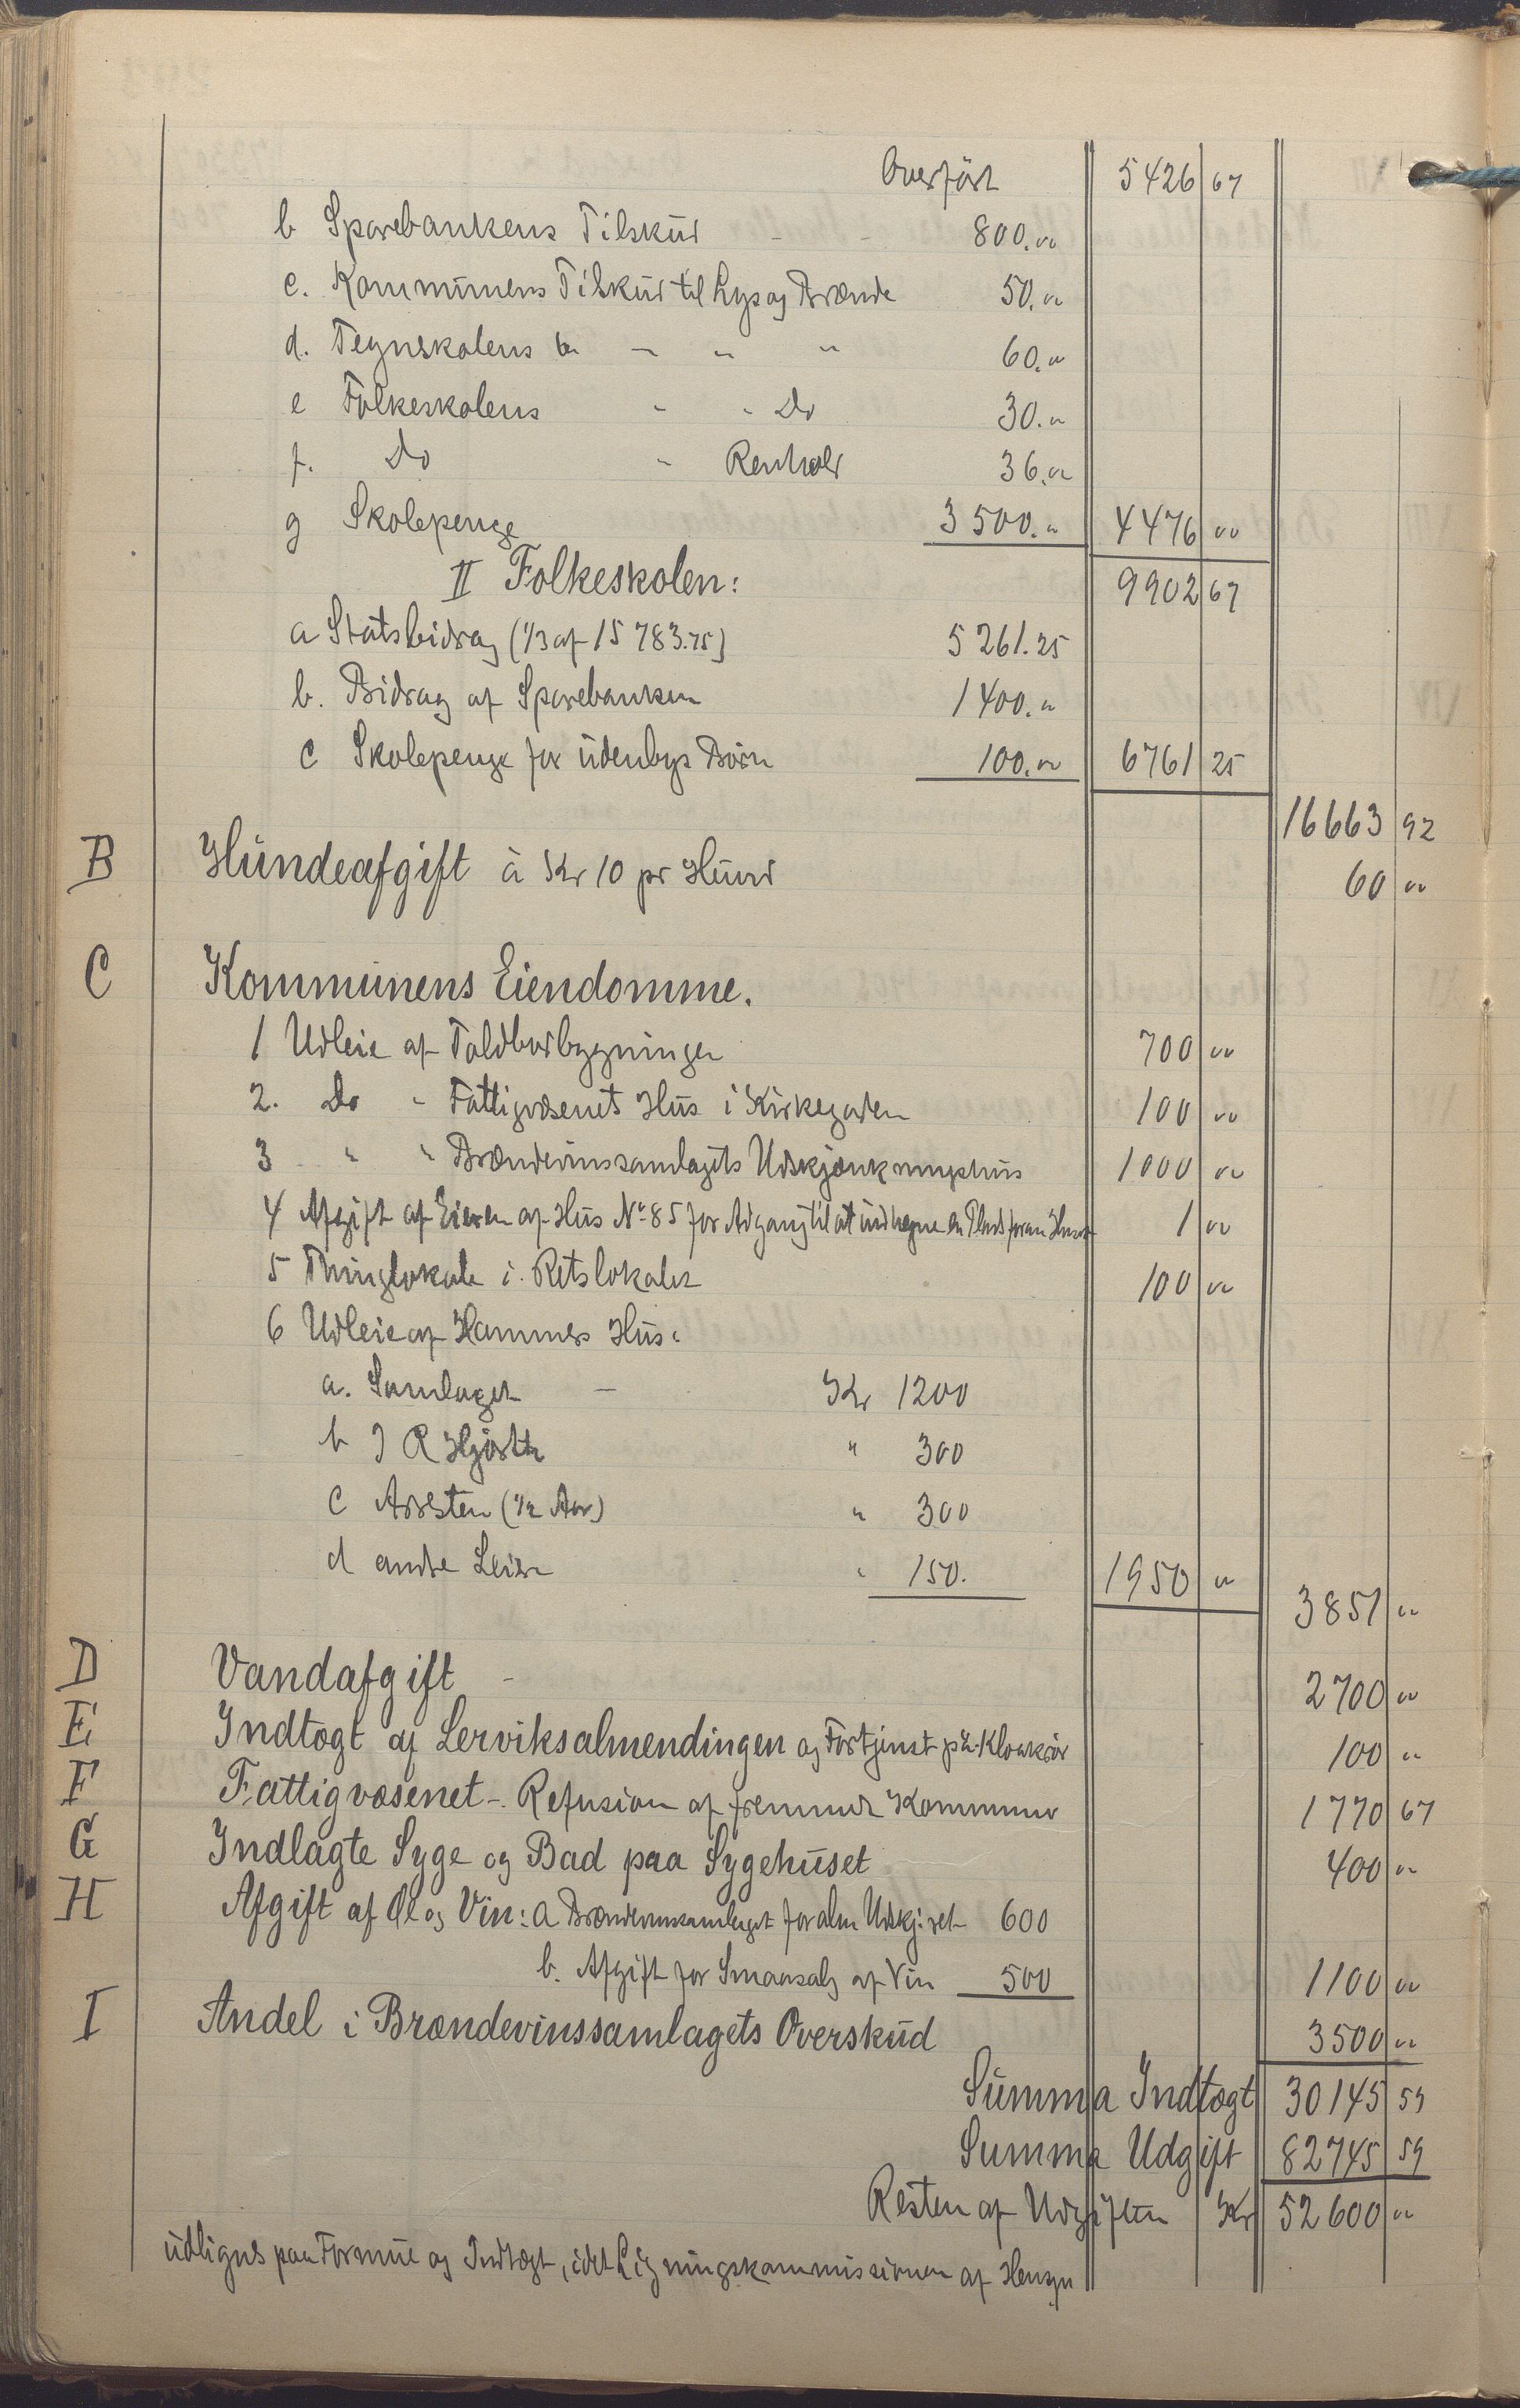 Overført 5426 67
b Sparebankens Tilskud - - 800."
c. Kommunens Tilskud til Lys og Brænde 50."
d. Tegnskolens " " " 60."
e Folkeskolens " " Do 30."
f. Do " Renhold 36."
g Skolepenge 3500." 4476 "
II Folkeskolen: 9902 67
a Statsbidrag (1/3 af 15783.75) 5261.25
b. Bidrag af Sparebanken 1400."
c Skolepenge for udenbys Børn 100." 6761 25
16663 92
B Hundeafgift à Kr 10 pr Hund 60 "
C Kommunens Eiendomme.
1 Udleie af Toldbodbygningen 700 "
2. Do " Fattigvæsenets Hus i Kirkegaden 100 "
3 " " Brændevinssamlagets Udskjænkningshus 1000 "
4 Afgift af Eieren af Hus No 85 for Adgang til at indhegne en Plads foran Huset 1 "
5 Thinglokale i Retslokalet 100 "
6 Udleie af Hammers Hus:
a. Samlaget - Kr 1200
b J R Hjorth " 300
c Arresten (1/2 Aar) " 300
d andre Leiere " 150. 1950 "
3851 "
D Vandafgift - 2700 "
E Indtægt af Lerviksalmendingen og Fortjenst på Kloakrør 100 "
F Fattigvæsenet - Refusion af fremmede Kommuner 1770 67
G Indlagte Syge og Bad paa Sygehuset 400 "
H Afgift af Øl og Vin: a Brændevinssamlaget for alm Udskj: ret 600
b. Afgift for Smaasalg af Vin 500 1100 "
I Andel i Brændevinssamlagets Overskud 3500 "
Summa Indtægt 30145 59
Summa Udgift 82745 59
Resten af Udgiften Kr 52600 "
udlignes paa Formue og Indtægt, idet Ligningskommissionen af Hensyn